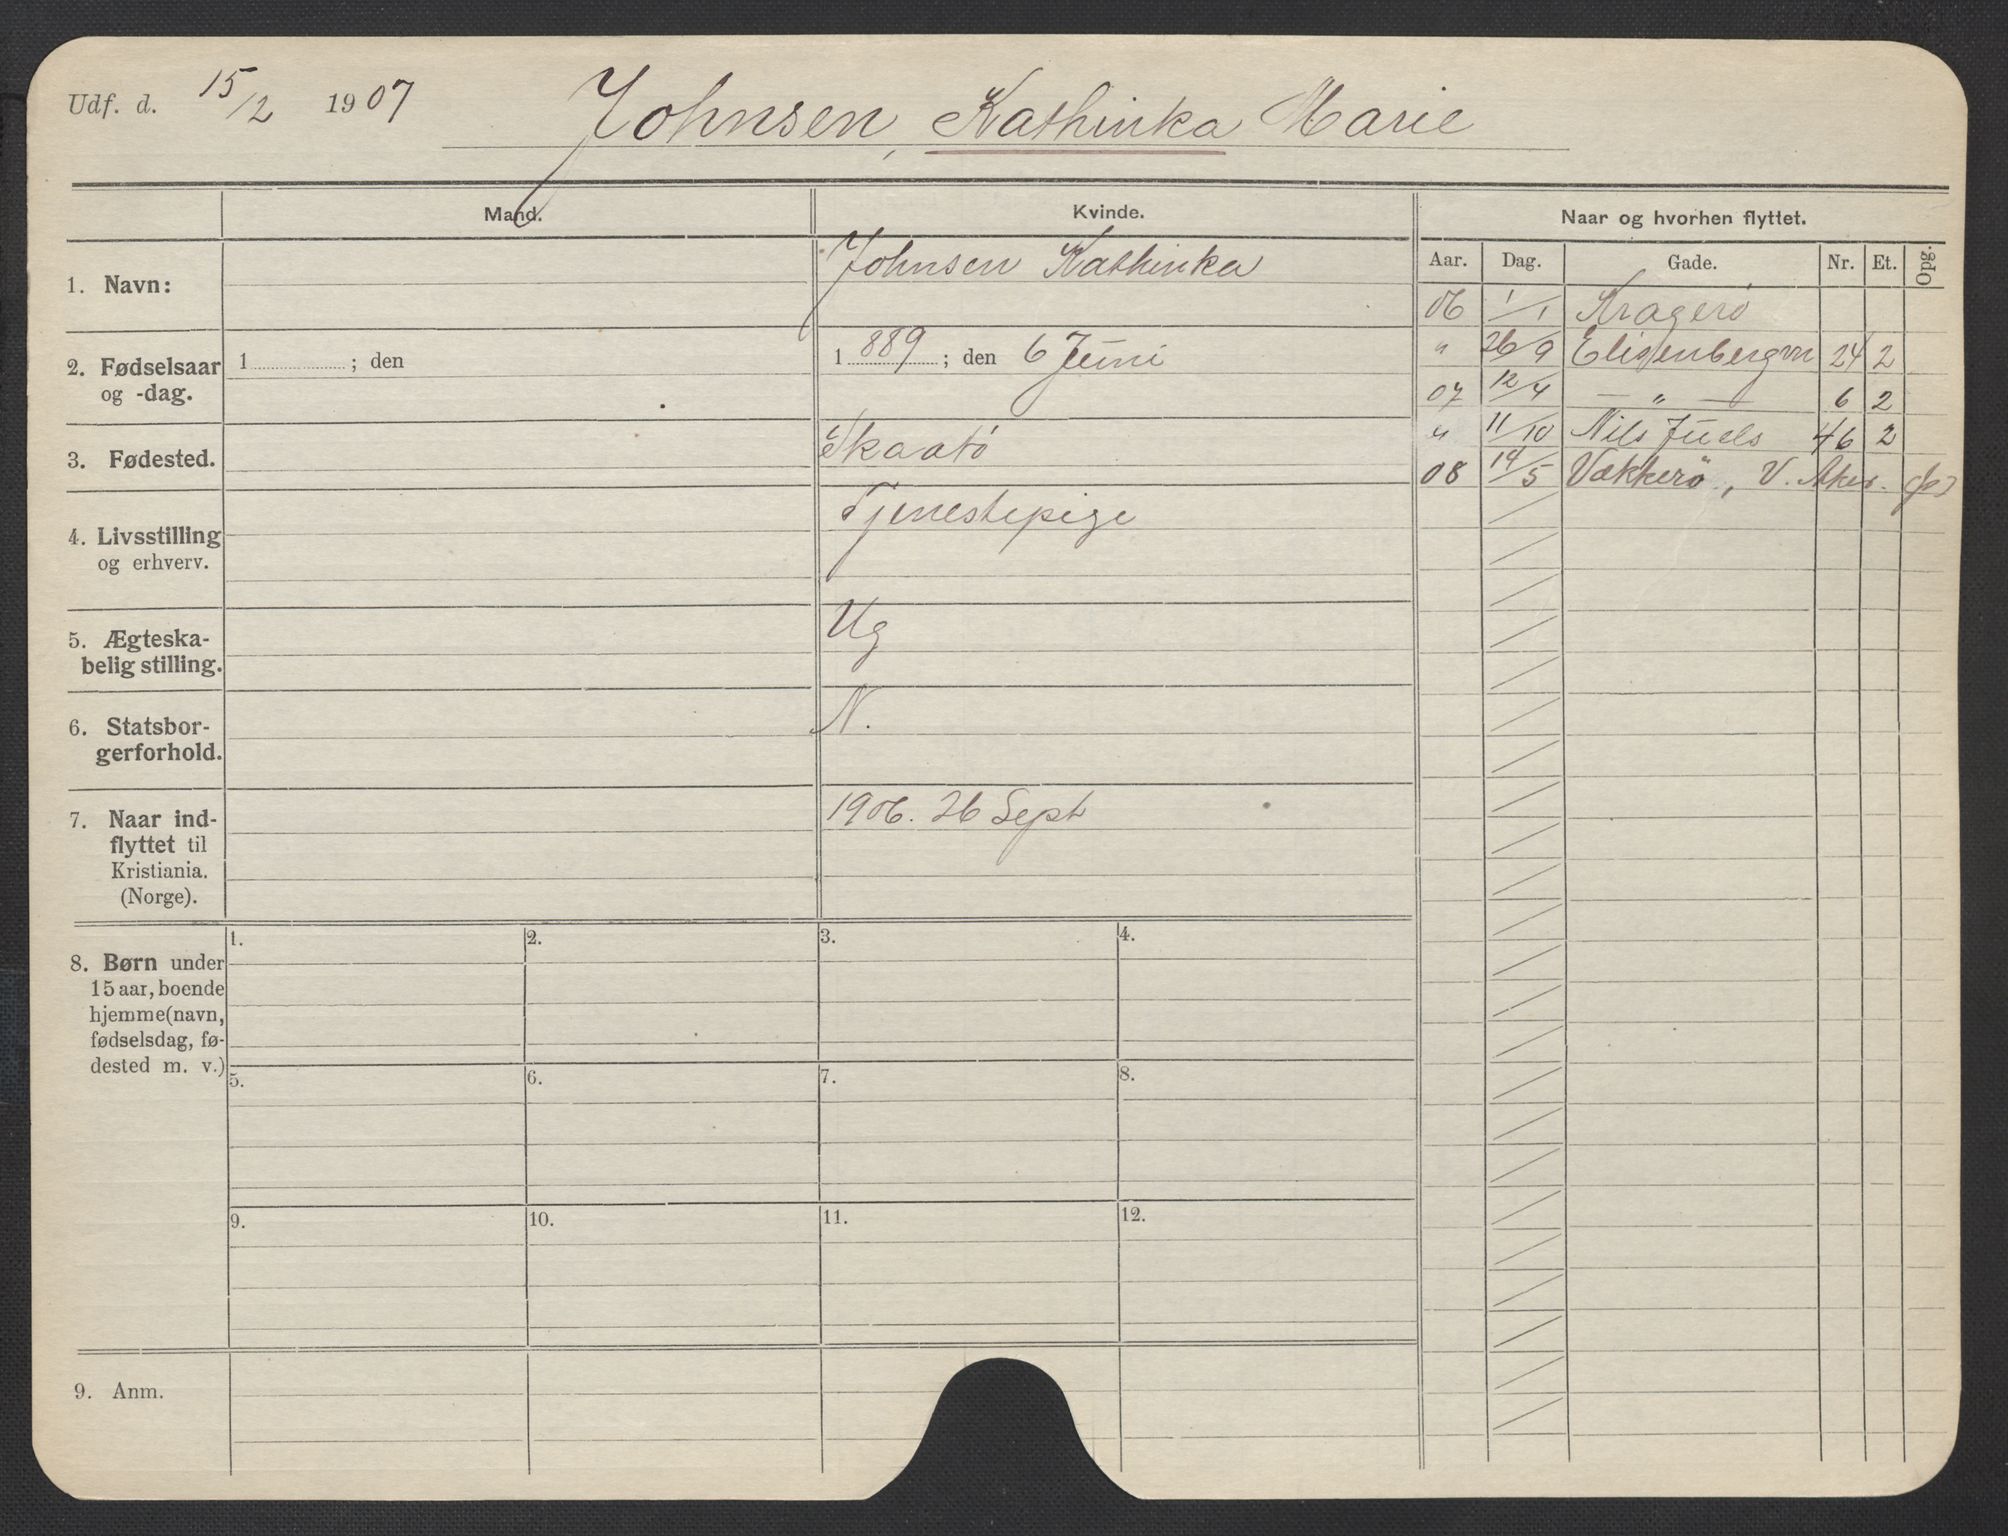 Udf. d. 15/2 1907 Johnsen, Kathinka Marie
Mand. Kvinde. Naar og hvorhen flyttet.
Aar. Dag. Gade. Nr. Et. Opg.
1. Navn: Johnsen Kathinka
2. Fødselsaar og -dag. 1 ; den 1 889 ; den 6 Juni
3. Fødested. Skaatö
4. Livsstilling og erhverv. Tjenestepige
5. Ægteska-
belig stilling. Ug
6. Statsbor-
gerforhold. N.
7. Naar ind-
flyttet til
Kristiania.
(Norge). 1906. 26 Sept
06 1/1 Kragerö
" 26/9 Elisenbergvn 24 2
07 12/4 — " — 6 2
" 11/10 Nils Juels 46 2
08 14/5 Vækkerö, V. Aker.
8. Børn under
15 aar, boende
hjemme (navn,
fødselsdag, fø-
dested m. v.)
1. 2. 3. 4.
5. 6. 7. 8.
9. 10. 11. 12.
9. Anm.